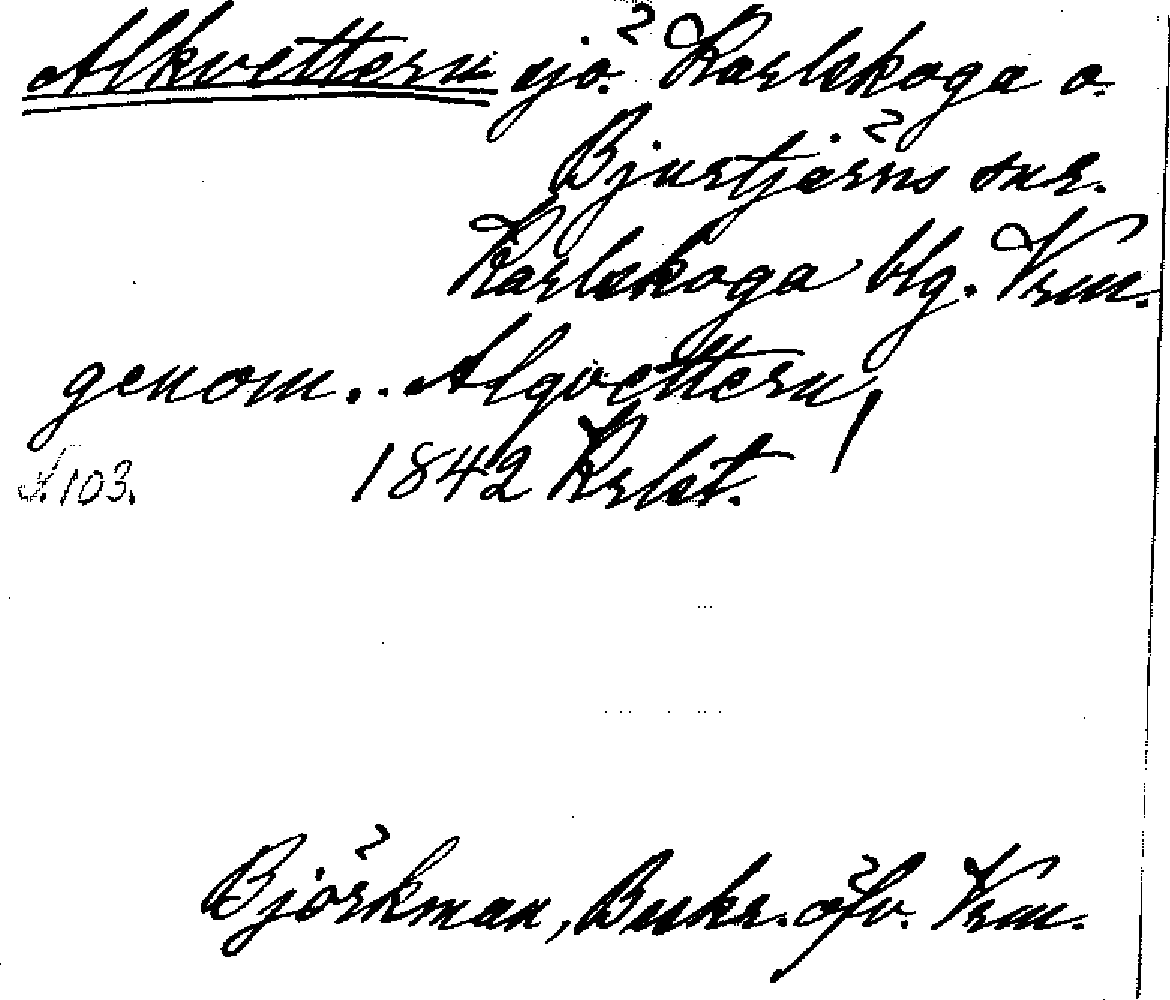 Alkvettern sjö. Karlskoga o.
Bjurtjärns snr.
Karlskoga blg. Vrm.
genom.. Alqvettern,
1842 Krlst. /
s. 103.
Björkman, Beskr. öfv. Vrm.